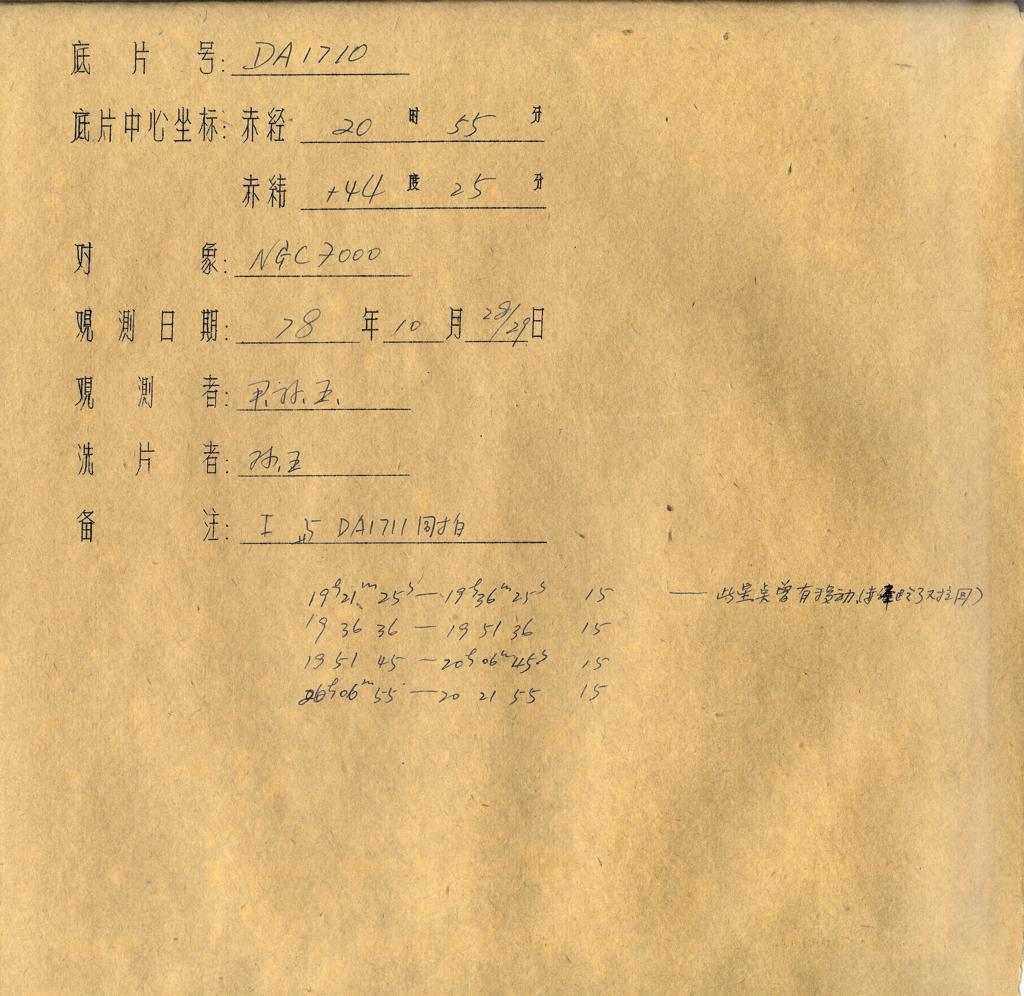 底片号: DA1710
底片中心坐标: 赤经 20 时 55 分
赤纬 +44 度 25 分
对象: NGC7000
观测日期: 78 年 10 月 28/29 日
观测者: 尹.孙.王.
洗片者: 孙.王
备注: I 与 DA1711 同拍
19h21m25s — 19h36m25s 15 — 此星点曾有移动
19 36 36 — 19 51 36 15
19 51 45 — 20h06m45s 15
20h06m55 — 20 21 55 15